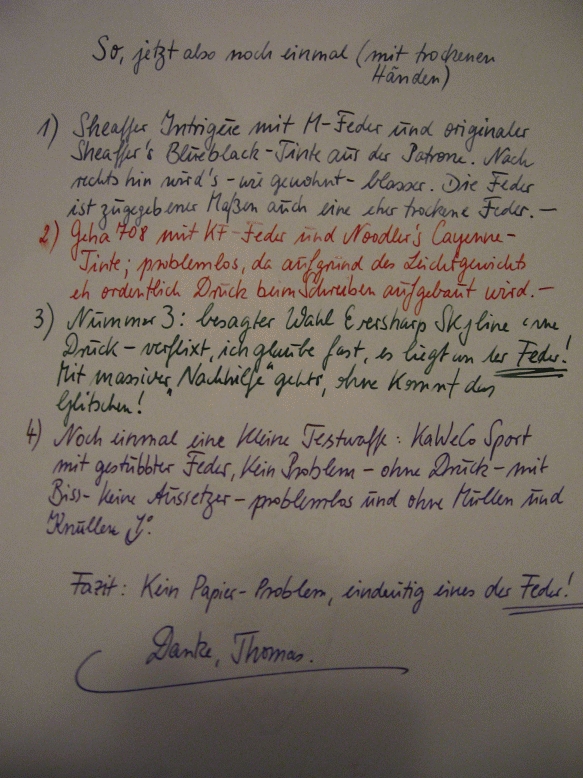 So, jetzt also noch einmal (mit trockenen
Händen)
1) Sheaffer Intrigue mit M-Feder und originaler
Sheaffer's Blueblack-Tinte aus der Patrone. Nach
rechts hin wird's - wie gewohnt - blasser. Die Feder
ist zugegebener Maßen auch eine eher trockene Feder. —
2) Geha 708 mit KF-Feder und Noodler's Cayenne-
Tinte; problemlos, da aufgrund des Leichtgewichts
eh ordentlich Druck beim Schreiben aufgebaut wird. —
3) Nummer 3: besagter Wahl Eversharp Skyline ohne
Druck - verflixt, ich glaube fast, es liegt an der Feder!
Mit massiver "Nachhilfe" gehts, ohne kommt das
Glitschen!
4) Noch einmal eine kleine Testwaffe: KaWeCo Sport
mit gestubbter Feder, kein Problem - ohne Druck - mit
Biss - keine Aussetzer - problemlos und ohne Müllen und
Knüllen
Fazit: Kein Papier-Problem, eindeutig eines der Feder!
Danke, Thomas.